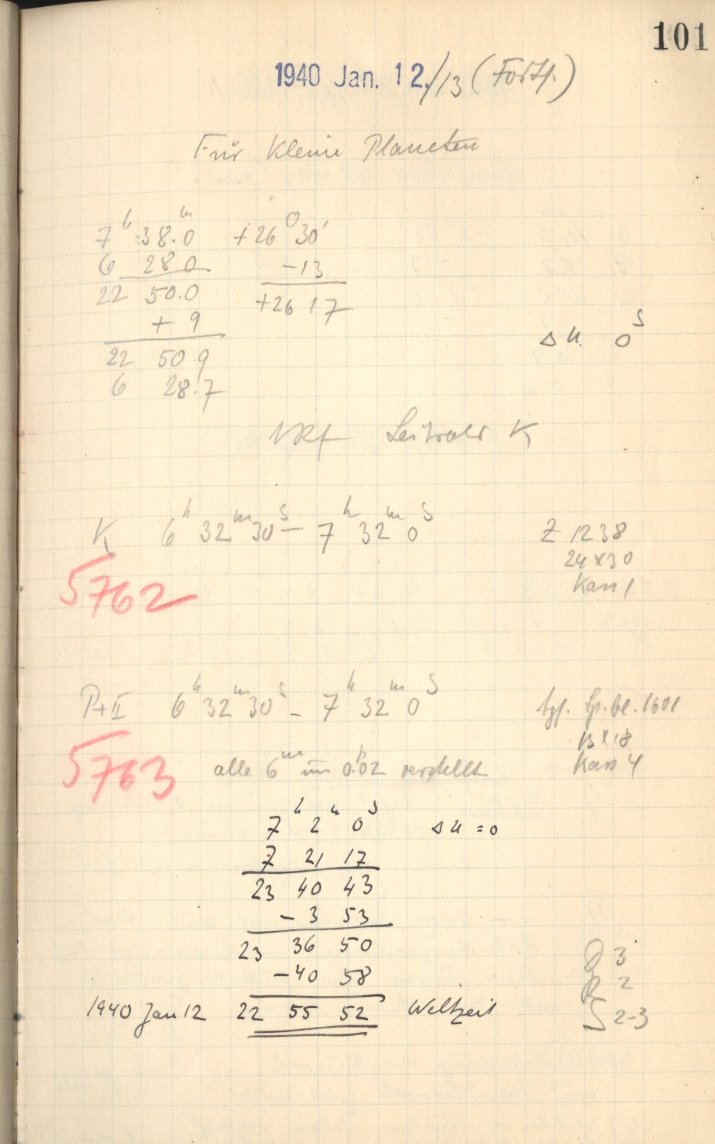 101
1940 Jan. 12./13 (Forts.)
Für Kleine Planeten
7ʰ 38.0ᵐ +26° 30'
6 28 0 -13
22 50.0 +26 17
+ 9
22 50 9
6 28.7
Δu 0ˢ
K
K 6ʰ 32ᵐ 30ˢ – 7ʰ 32ᵐ 0ˢ Z 1238
24 x 30
Kass 1
5762
P+II 6ʰ 32ᵐ 30ˢ – 7ʰ 32ᵐ 0ˢ
13 x 18
Kass 4
5763 alle 6ᵐ um verstellt
7ʰ 2ᵐ 0ˢ Δu = 0
7 21 17
23 40 43
- 3 53
23 36 50
-40 58
1940 Jan 12 22 55 52 Weltzeit
3
2
2-3